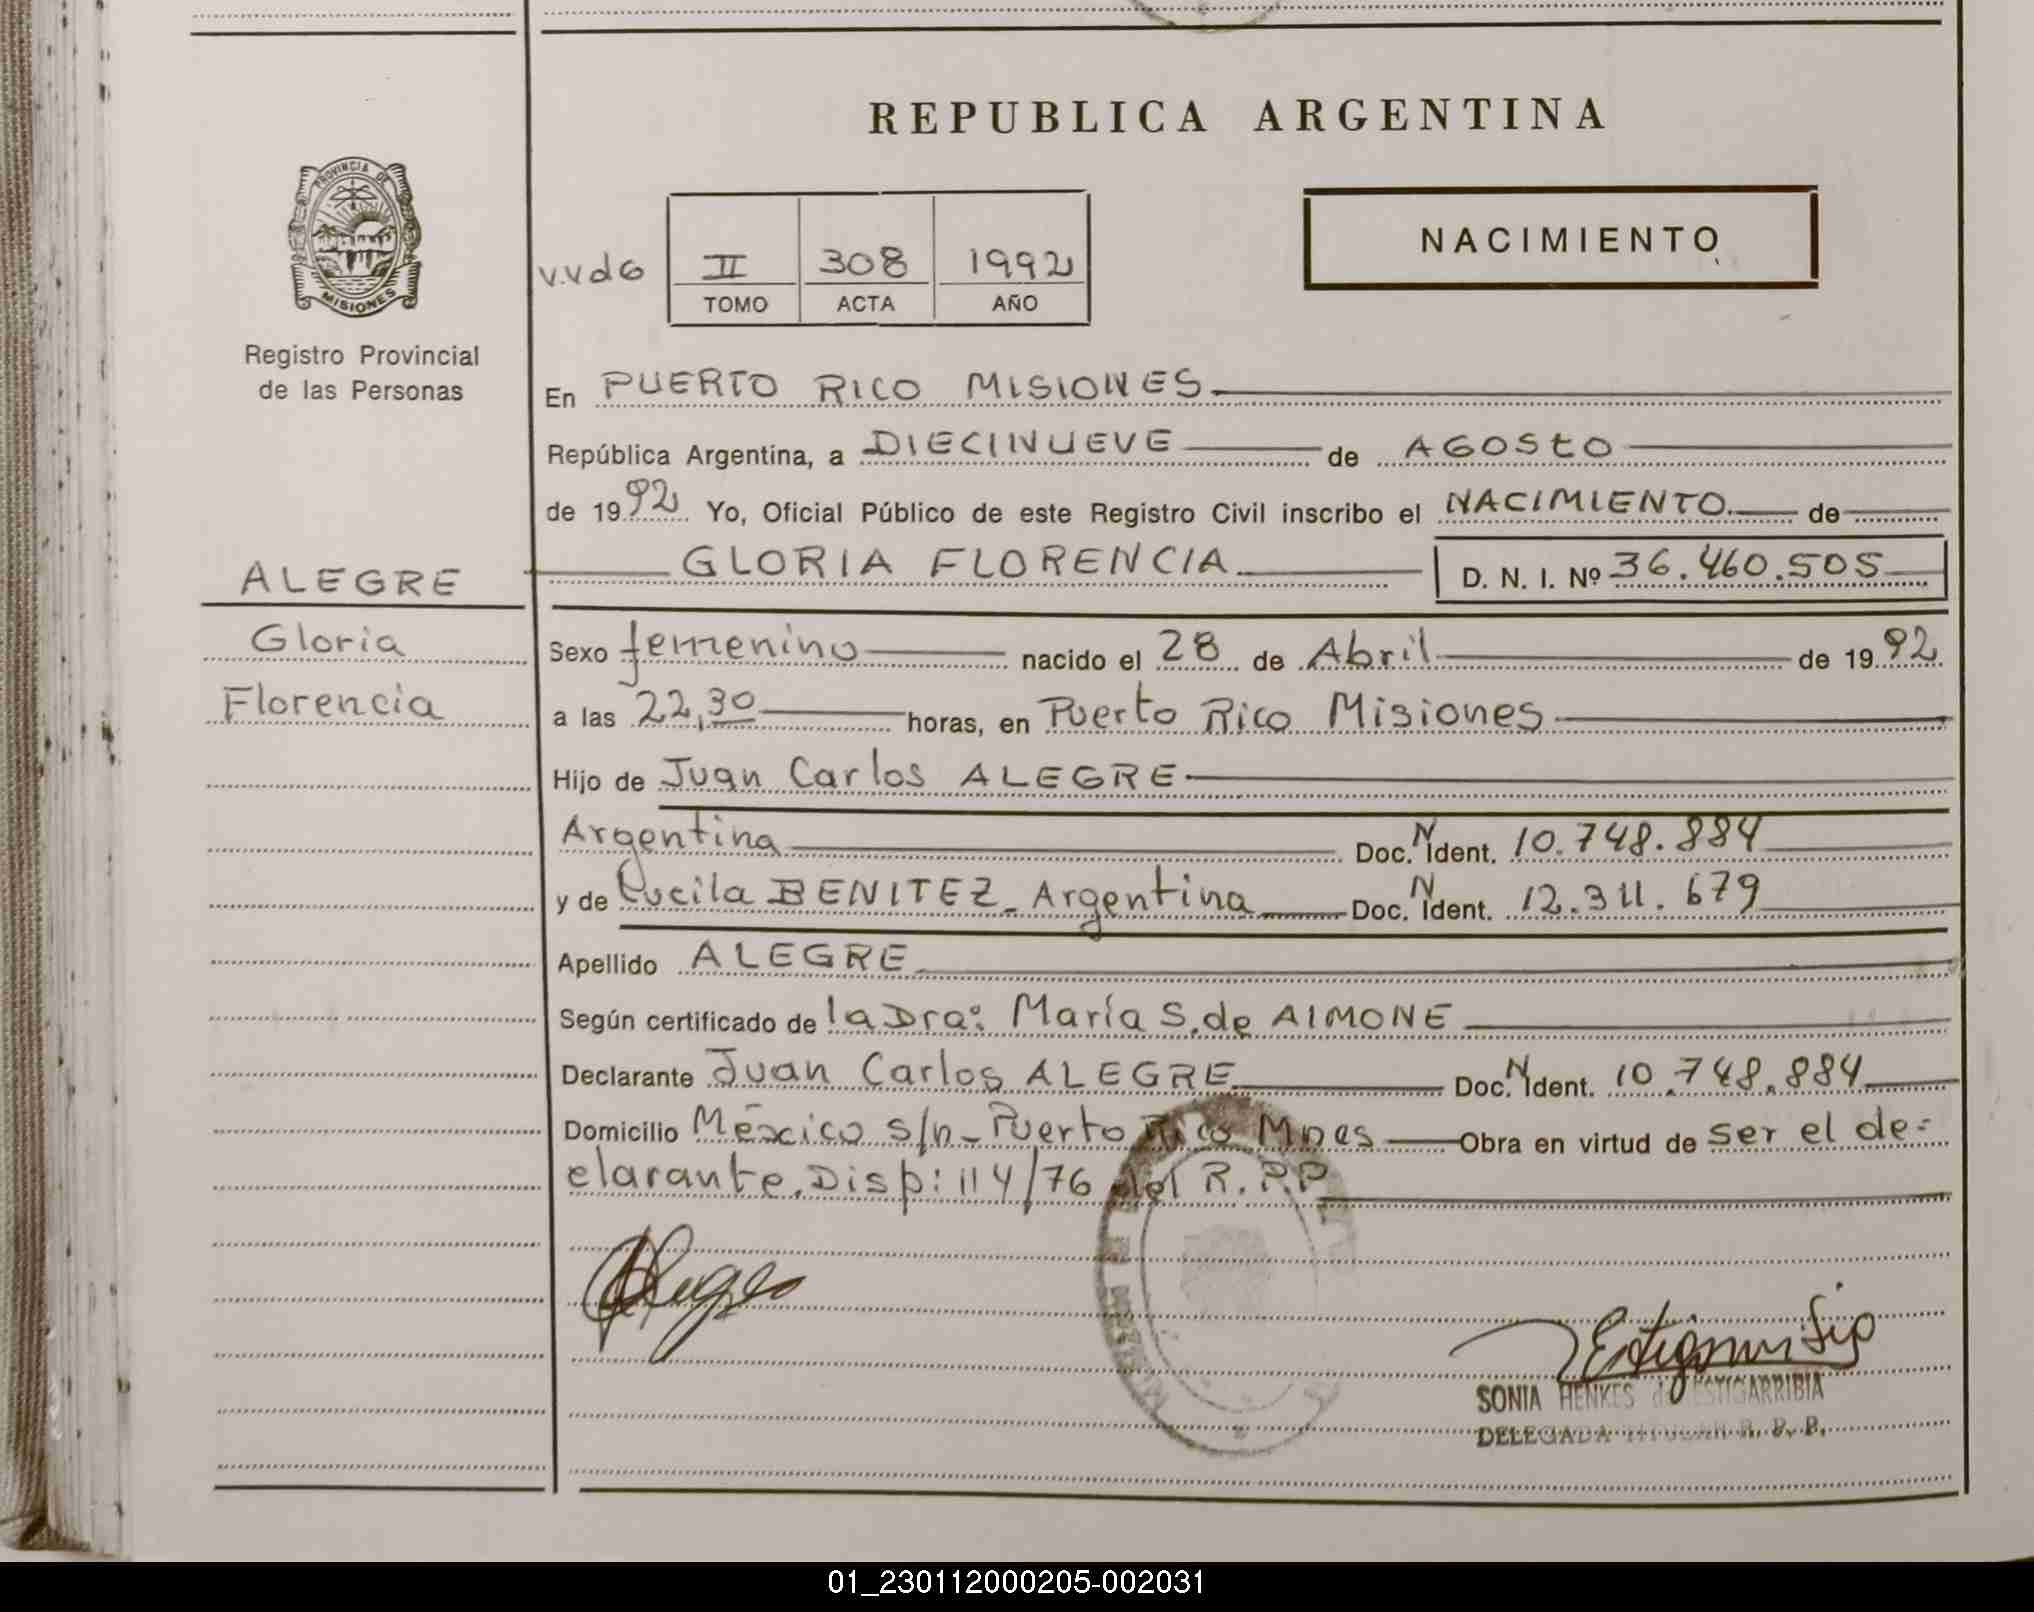 REPUBLICA ARGENTINA
PROVINCIA DE
MISIONES
Registro Provincial
de las Personas
NACIMIENTO
II 308 1992
TOMO ACTA AÑO
En PUERTO RICO MISIONES
República Argentina, a DIECINUEVE de AGOSTO
de 1992 Yo, Oficial Público de este Registro Civil inscribo el NACIMIENTO de
ALEGRE
GLORIA FLORENCIA D. N. I. Nº 36.460.505
Gloria
Florencia
Sexo femenino nacido el 28 de Abril de 1992
a las 22,30 horas, en Puerto Rico Misiones
Hijo de Juan Carlos ALEGRE
Argentina Doc. N Ident. 10.748.884
y de Lucila BENITEZ_ Argentina Doc. N Ident. 12.311.679
Apellido ALEGRE
Según certificado de la Dra: María S. de AIMONE
Declarante Juan Carlos ALEGRE Doc. N Ident. 10.748.884
Domicilio México s/n_ Puerto Rico Mnes Obra en virtud de ser el de=
clarante. Disp: 114/76 del R.P.P
SONIA HENKES de ESTIGARRIBIA
DELEGADA TITULAR R. P. P.
01_230112000205-002031